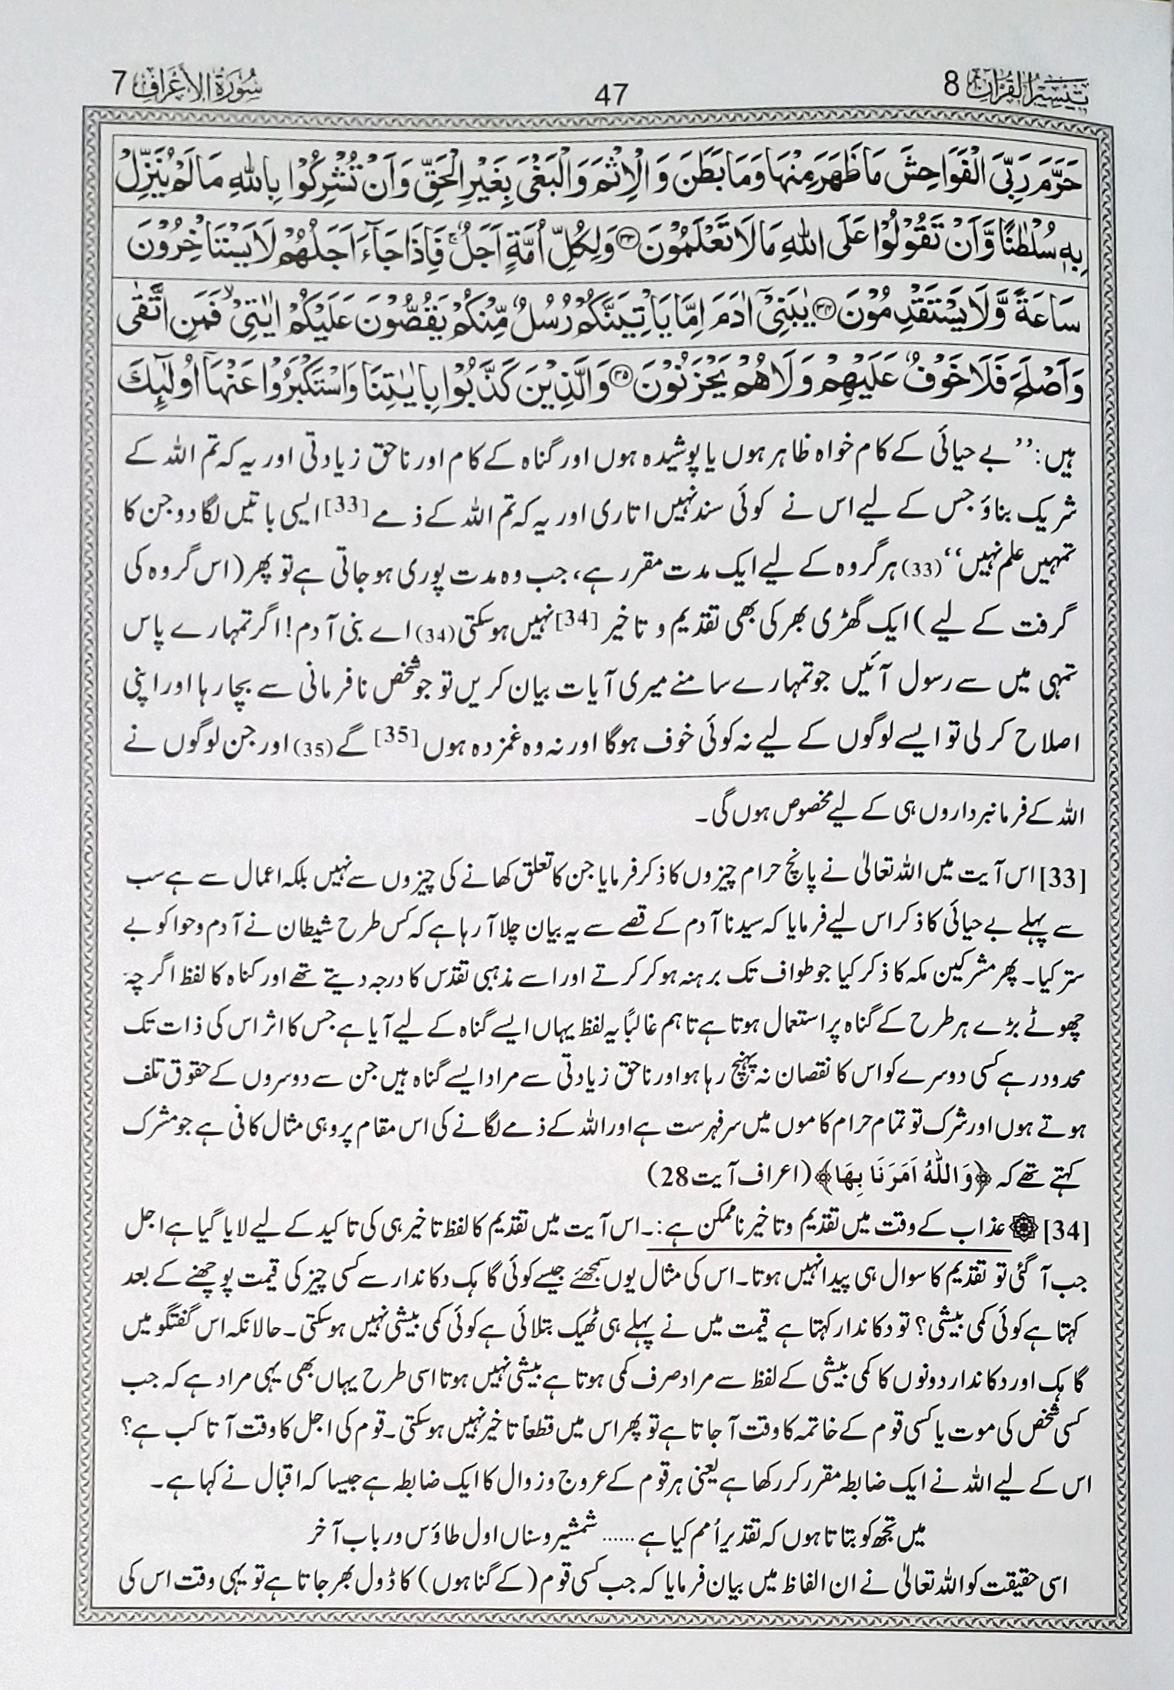 تیسیر القرآن 8
47
سُورَةُ الأَعْرَاف 7
حَرَّمَ رَبِّیَ الْفَوَاحِشَ مَا ظَهَرَ مِنْهَا وَمَا بَطَنَ وَ الْاِثْمَ وَ الْبَغْیَ بِغَیْرِ الْحَقِّ وَ اَنْ تُشْرِكُوْا بِاللّٰهِ مَا لَمْ یُنَزِّلْ
بِهٖ سُلْطٰنًا وَّ اَنْ تَقُوْلُوْا عَلَی اللّٰهِ مَا لَا تَعْلَمُوْنَ ﴿۳۳﴾ وَ لِكُلِّ اُمَّةٍ اَجَلٌ ۚ فَاِذَا جَآءَ اَجَلُهُمْ لَا یَسْتَاْخِرُوْنَ
سَاعَةً وَّ لَا یَسْتَقْدِمُوْنَ ﴿۳۴﴾ یٰبَنِیْۤ اٰدَمَ اِمَّا یَاْتِیَنَّكُمْ رُسُلٌ مِّنْكُمْ یَقُصُّوْنَ عَلَیْكُمْ اٰیٰتِیْ ۙ فَمَنِ اتَّقٰی
وَ اَصْلَحَ فَلَا خَوْفٌ عَلَیْهِمْ وَ لَا هُمْ یَحْزَنُوْنَ ﴿۳۵﴾ وَ الَّذِیْنَ كَذَّبُوْا بِاٰیٰتِنَا وَ اسْتَكْبَرُوْا عَنْهَاۤ اُولٰٓىِٕكَ
ہیں: ’’بے حیائی کے کام خواہ ظاہر ہوں یا پوشیدہ ہوں اور گناہ کے کام اور ناحق زیادتی اور یہ کہ تم اللہ کے
شریک بناؤ جس کے لیے اس نے کوئی سند نہیں اتاری اور یہ کہ تم اللہ کے ذمے [33] ایسی باتیں لگا دو جن کا
تمہیں علم نہیں‘‘ (33) ہر گروہ کے لیے ایک مدت مقرر ہے، جب وہ مدت پوری ہو جاتی ہے تو پھر (اس گروہ کی
گرفت کے لیے) ایک گھڑی بھر کی بھی تقدیم و تاخیر [34] نہیں ہوسکتی (34) اے بنی آدم! اگر تمہارے پاس
تمہی میں سے رسول آئیں جو تمہارے سامنے میری آیات بیان کریں تو جو شخص نافرمانی سے بچا رہا اور اپنی
اصلاح کر لی تو ایسے لوگوں کے لیے نہ کوئی خوف ہوگا اور نہ وہ غمزدہ ہوں [35] گے (35) اور جن لوگوں نے
اللہ کے فرمانبرداروں ہی کے لیے مخصوص ہوں گی۔
[33] اس آیت میں اللہ تعالیٰ نے پانچ حرام چیزوں کا ذکر فرمایا جن کا تعلق کھانے کی چیزوں سے نہیں بلکہ اعمال سے ہے سب
سے پہلے بے حیائی کا ذکر اس لیے فرمایا کہ سیدنا آدم کے قصے سے یہ بیان چلا آ رہا ہے کہ کس طرح شیطان نے آدم و حوا کو بے
ستر کیا۔ پھر مشرکین مکہ کا ذکر کیا جو طواف تک برہنہ ہو کر کرتے اور اسے مذہبی تقدس کا درجہ دیتے تھے اور گناہ کا لفظ اگرچہ
چھوٹے بڑے ہر طرح کے گناہ پر استعمال ہوتا ہے تاہم غالباً یہ لفظ یہاں ایسے گناہ کے لیے آیا ہے جس کا اثر اس کی ذات تک
محدود رہے کسی دوسرے کو اس کا نقصان نہ پہنچ رہا ہو اور ناحق زیادتی سے مراد ایسے گناہ ہیں جن سے دوسروں کے حقوق تلف
ہوتے ہوں اور شرک تو تمام حرام کاموں میں سرفہرست ہے اور اللہ کے ذمے لگانے کی اس مقام پر وہی مثال کافی ہے جو مشرک
کہتے تھے کہ ﴿وَاللّٰهُ اَمَرَنَا بِهَا﴾ (اعراف آیت 28)
[34] ۞ عذاب کے وقت میں تقدیم و تاخیر ناممکن ہے:۔ اس آیت میں تقدیم کا لفظ تاخیر ہی کی تاکید کے لیے لایا گیا ہے اجل
جب آ گئی تو تقدیم کا سوال ہی پیدا نہیں ہوتا۔ اس کی مثال یوں سمجھئے جیسے کوئی گاہک دکاندار سے کسی چیز کی قیمت پوچھنے کے بعد
کہتا ہے کوئی کمی بیشی؟ تو دکاندار کہتا ہے قیمت میں نے پہلے ہی ٹھیک بتلائی ہے کوئی کمی بیشی نہیں ہوسکتی۔ حالانکہ اس گفتگو میں
گاہک اور دکاندار دونوں کا کمی بیشی کے لفظ سے مراد صرف کمی ہوتا ہے بیشی نہیں ہوتا اسی طرح یہاں بھی یہی مراد ہے کہ جب
کسی شخص کی موت یا کسی قوم کے خاتمہ کا وقت آ جاتا ہے تو پھر اس میں قطعاً تاخیر نہیں ہوسکتی۔ قوم کی اجل کا وقت آتا کب ہے؟
اس کے لیے اللہ نے ایک ضابطہ مقرر کر رکھا ہے یعنی ہر قوم کے عروج و زوال کا ایک ضابطہ ہے جیسا کہ اقبال نے کہا ہے۔
میں تجھ کو بتاتا ہوں کہ تقدیر اُمم کیا ہے ...... شمشیر و سناں اول طاؤس و رباب آخر
اسی حقیقت کو اللہ تعالیٰ نے ان الفاظ میں بیان فرمایا کہ جب کسی قوم (کے گناہوں) کا ڈول بھر جاتا ہے تو یہی وقت اس کی